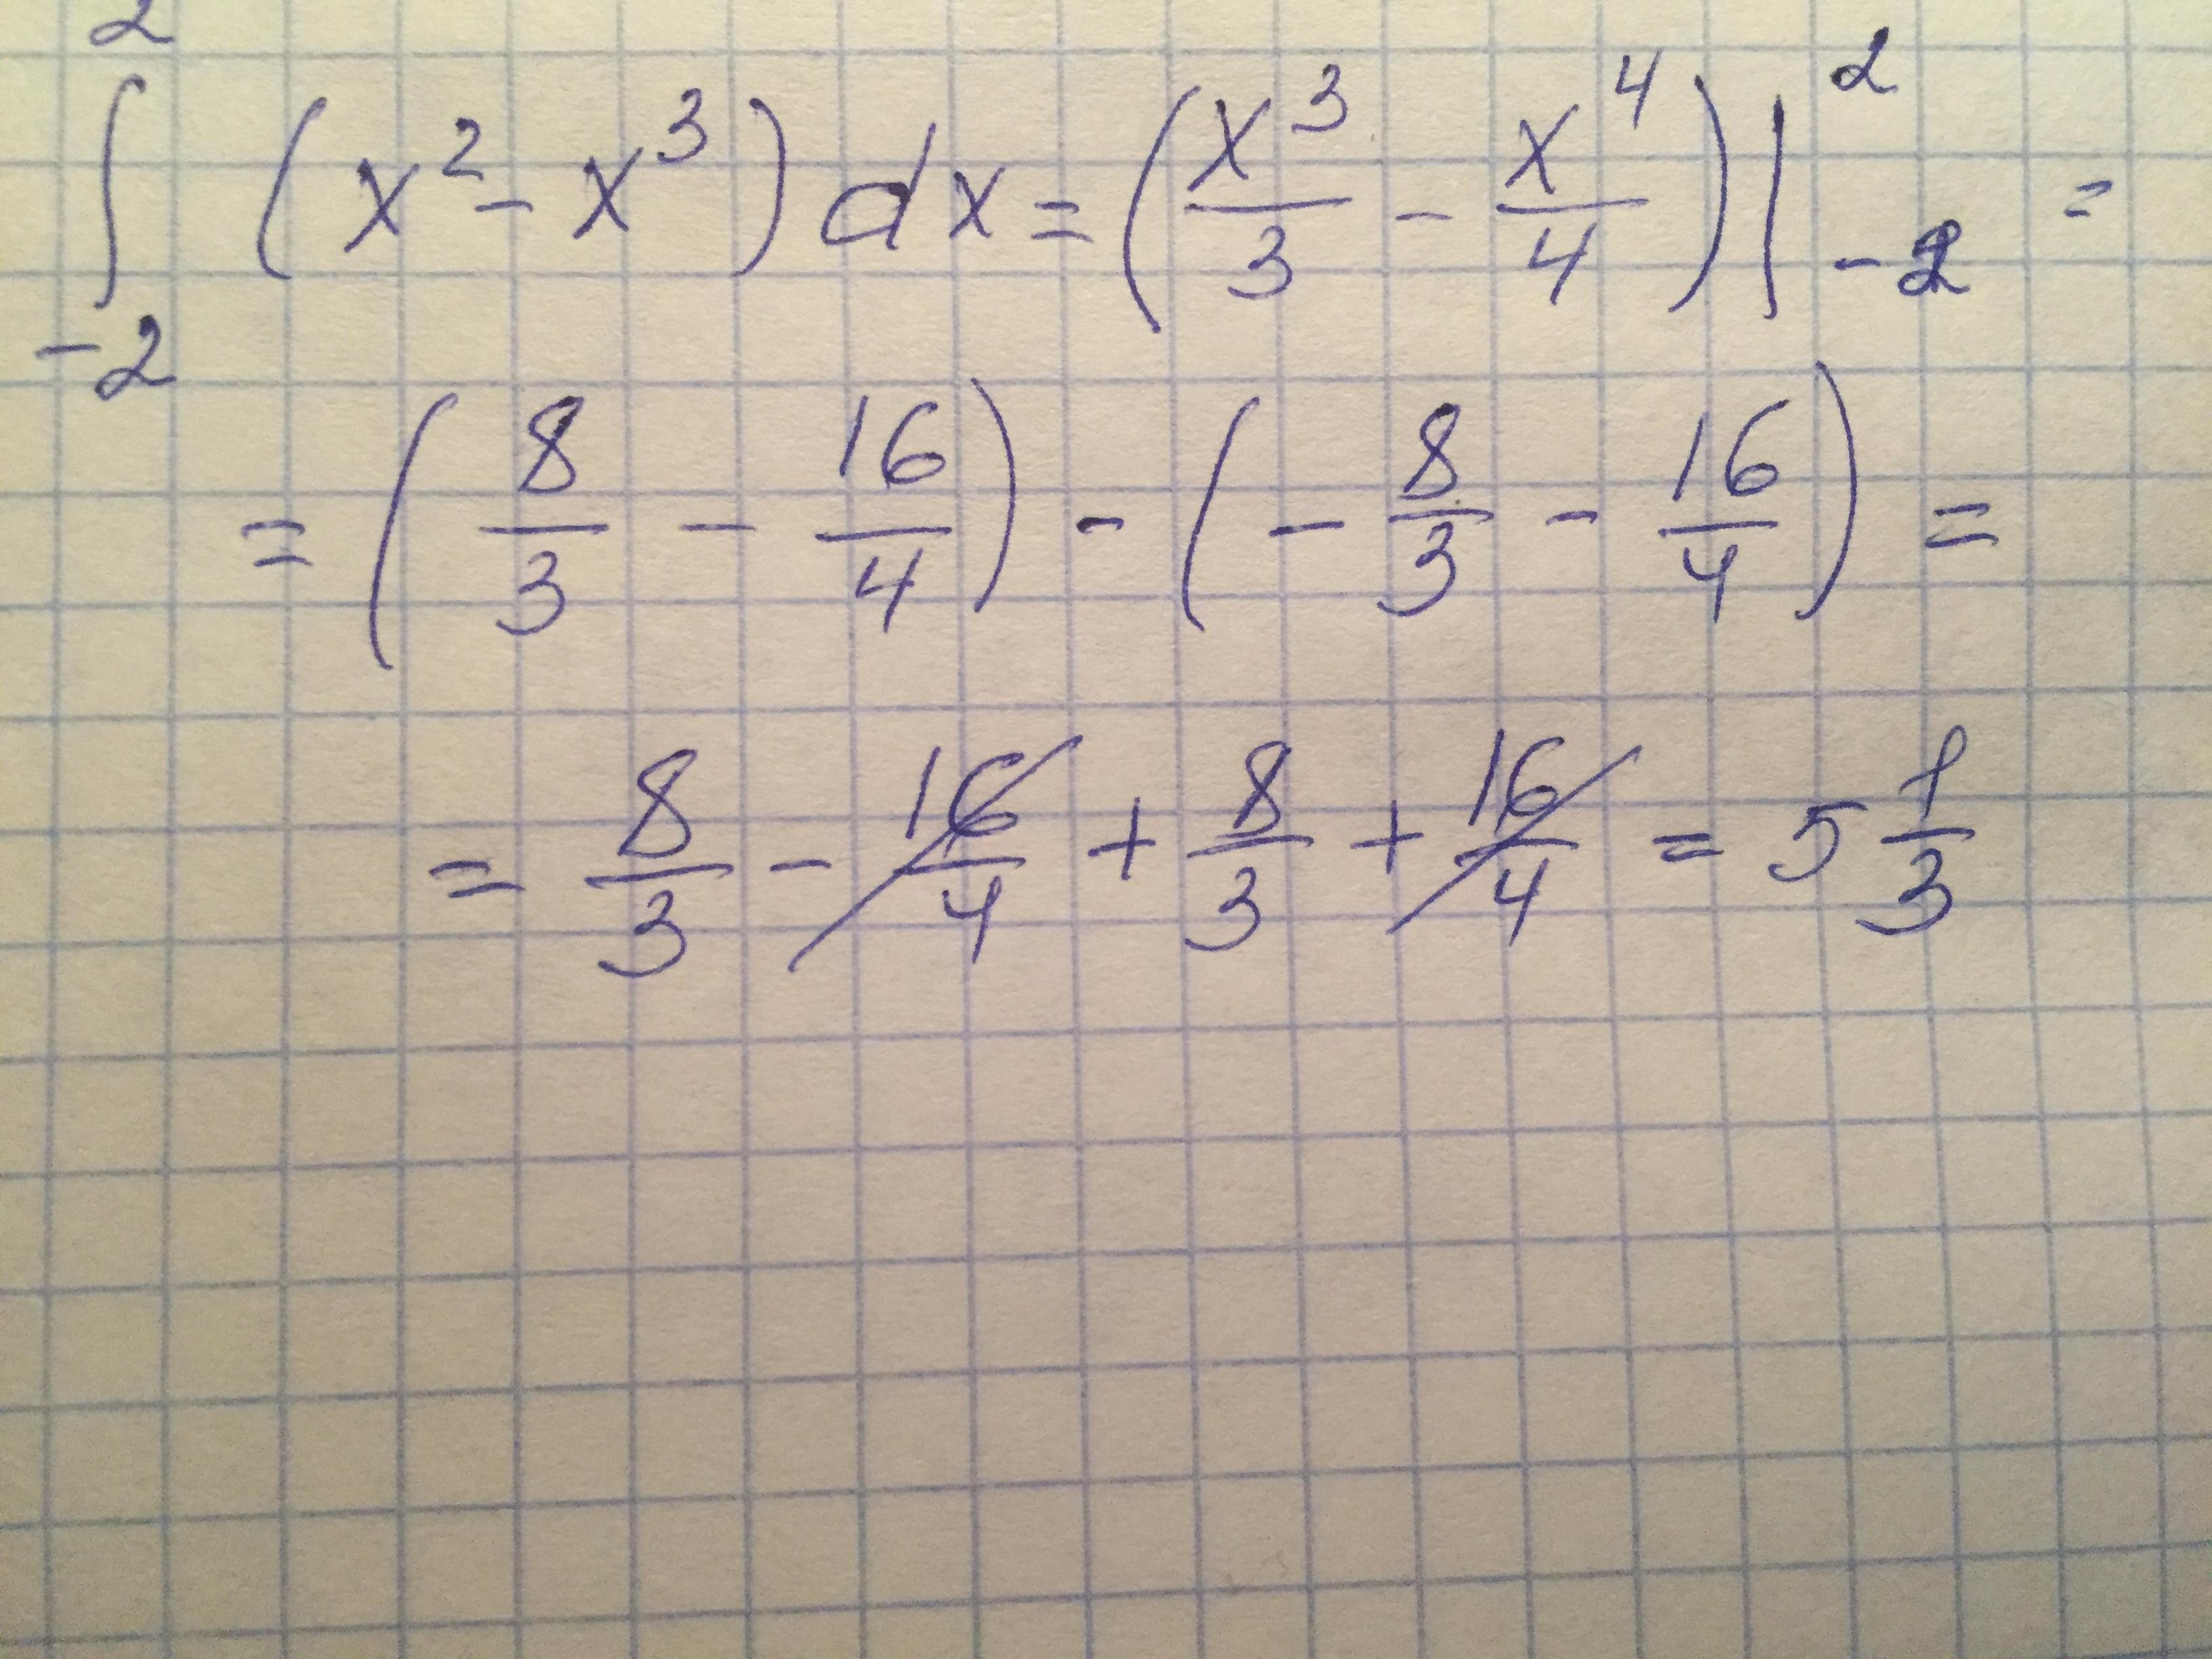 ∫₋₂² (x² - x³) dx = (x³/3 - x⁴/4) |₋₂² =
= (8/3 - 16/4) - (- 8/3 - 16/4) =
= 8/3 - 16/4 + 8/3 + 16/4 = 5 1/3